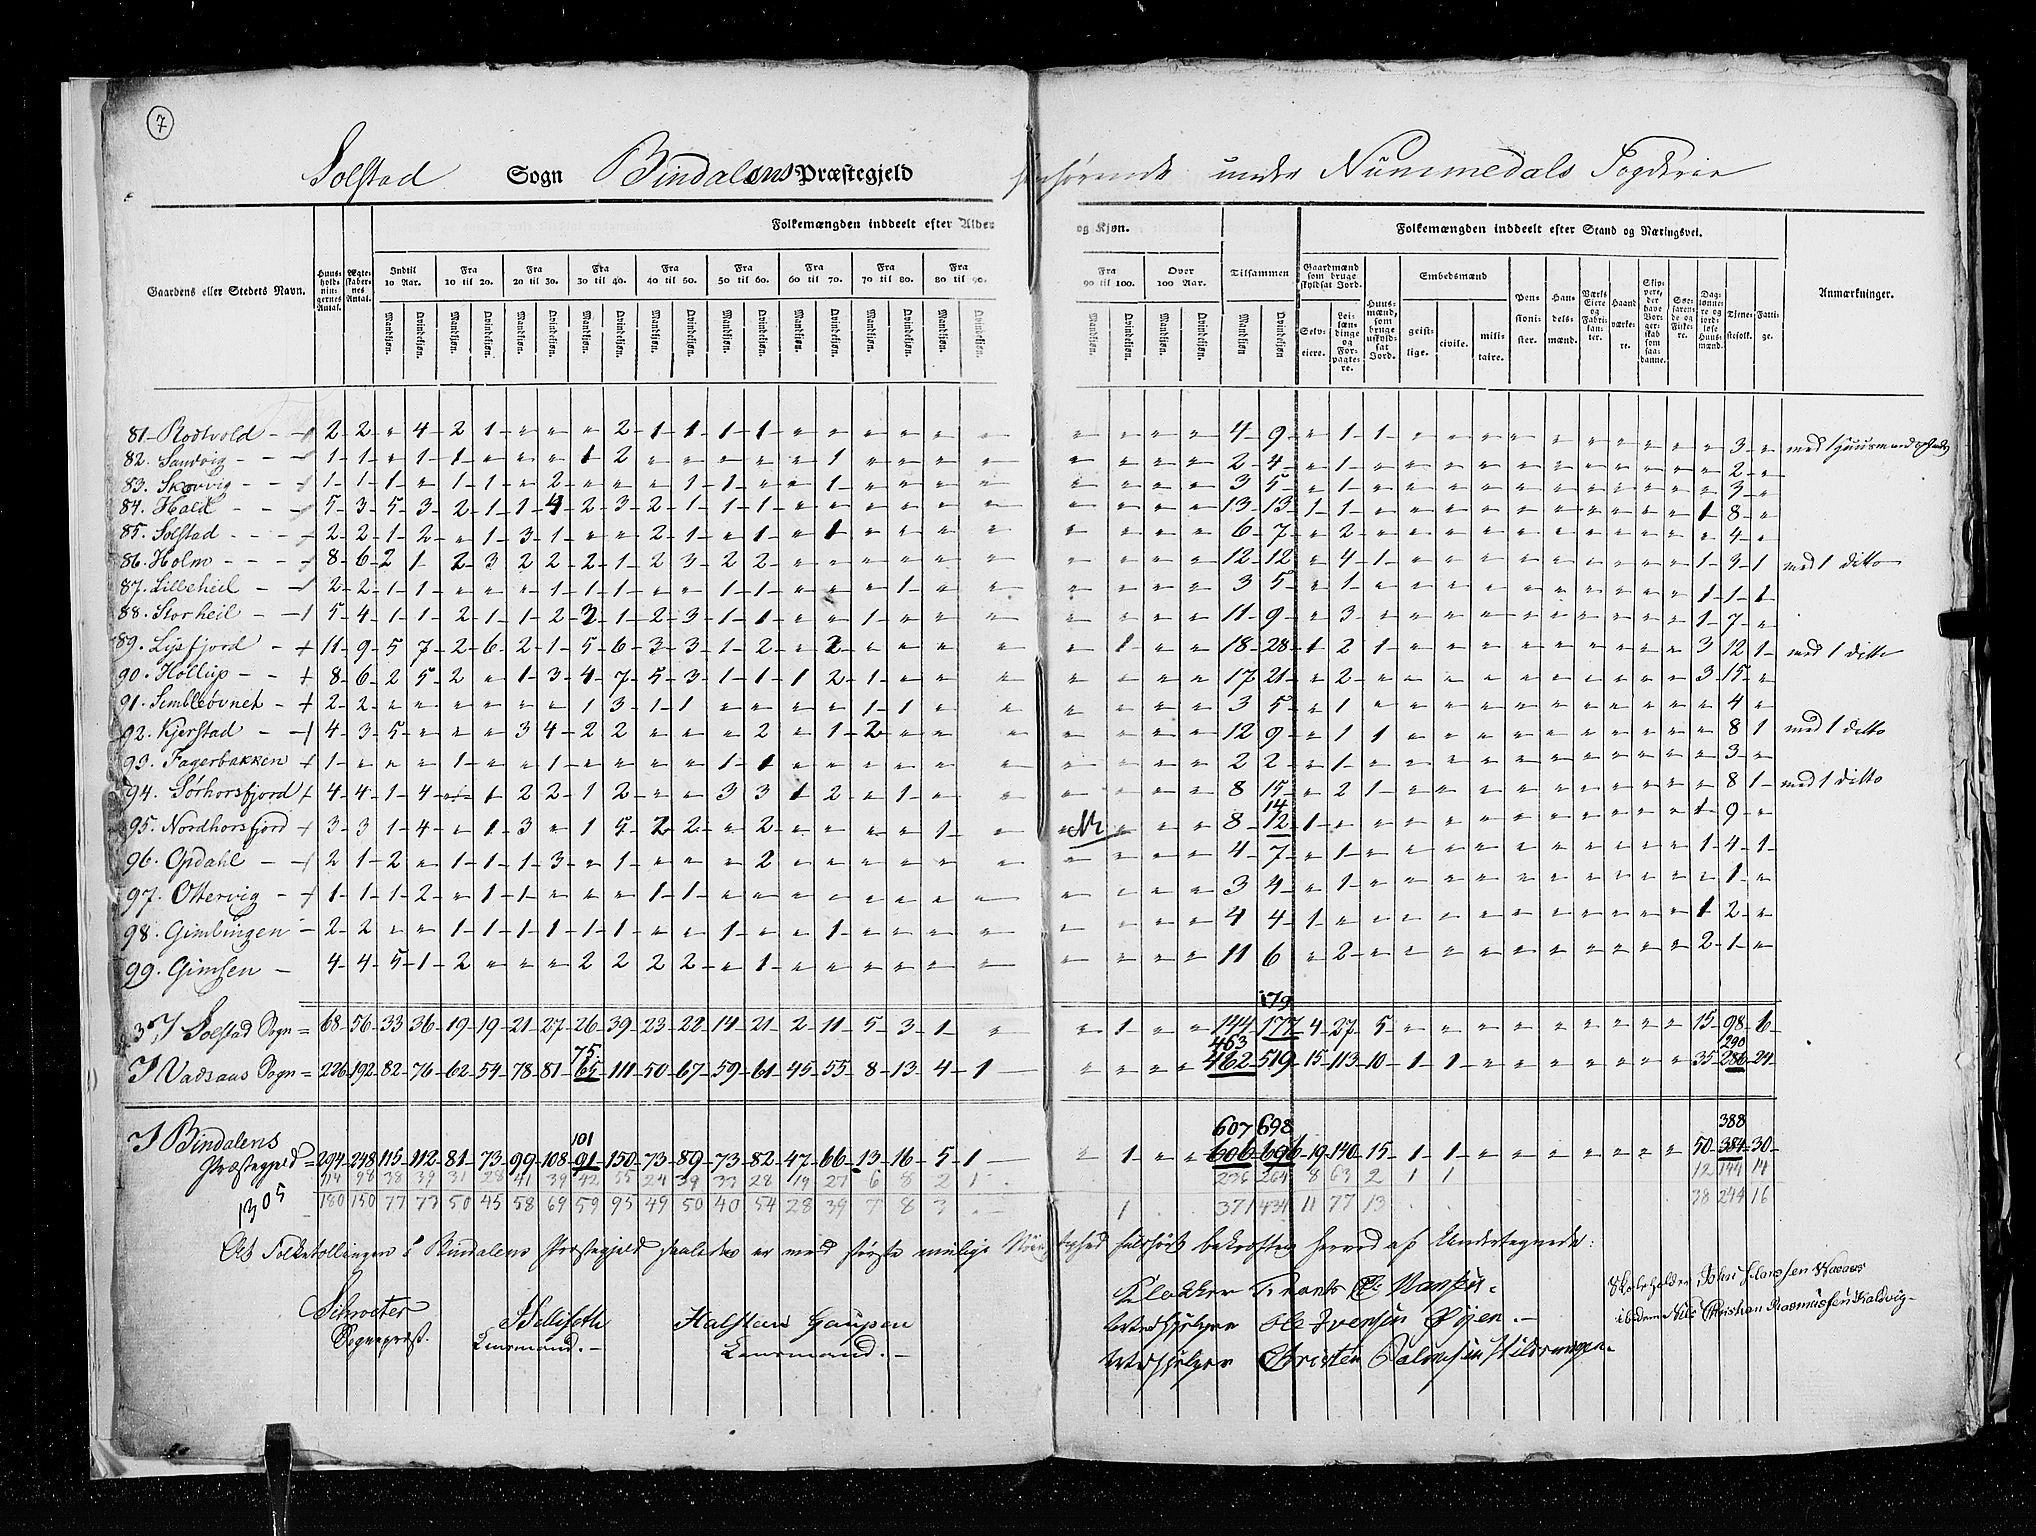 7
Solstad Sogn Bindalens Præstegjeld henhørende under Nummedals Fogderie
Gaardens eller Stedets Navn.
Huus-holdnin-gernes Antal.
Ægte-skaber-nes Antal.
Folkemængden inddeelt efter Alder og Kjøn.
Indtil 10 Aar. Fra 10 til 20. Fra 20 til 30. Fra 30 til 40. Fra 40 til 50. Fra 50 til 60. Fra 60 til 70. Fra 70 til 80. Fra 80 til 90. Fra 90 til 100. Over 100 Aar. Tilsammen
Mandkjøn. Qvindekjøn.
Folkemængden inddeelt efter Stand og Næringsvei.
Gaardmænd som bruge skyldsat Jord. Selv-eiere. Lei-læn-dinge og For-pagte-re.
Huus-mænd, som bruge uskyld-sat Jord.
Embedsmænd geist-lige. civile. mili-taire.
Pen-sioni-ster. Han-dels-mænd. Værks Eiere og Fabri-kan-ter. Haand-værke-re. Skip-pere, der have Bor-ger-skab som saa-danne. Søe-farende og Fiske-re. Dag-lønne-re og jord-løse Huus-mænd. Tjene-stefolk. Fatti-ge.
Anmærkninger.
81. Rodtvold 2 2 " 4 2 1 " " " 2 1 1 1 1 " " " " " " " " " " 4 9 " 1 1 " " " " " " " " " " 3 " med 1
82. Sandvig 1 1 " 1 1 " " " 1 2 " " " " " 1 " " " " " " " " 2 4 " 1 " " " " " " " " " " " 2 "
83. Skovvig 1 1 1 " 1 1 " 2 " " " 1 1 " " 1 " " " " " " " " 3 5 " 1 " " " " " " " " " " " 3 "
84. Hald 5 3 5 3 2 1 1 4 2 3 2 1 1 1 " " " " " " " " " " 13 13 1 1 " " " " " " " " " " 1 8 "
85. Solstad 2 2 1 2 " 1 3 1 " " 2 1 " 1 " 1 " " " " " " " " 6 7 " 2 " " " " " " " " " " " 4 "
86. Holm 8 6 2 1 2 3 2 2 2 1 2 3 2 2 " " " " " " " " " " 12 12 " 4 1 " " " " " " " " " 1 9 1 med 1 ditto
87. Lilleheil 2 2 1 1 " " " 1 1 1 " " 1 1 " " " 1 " " " " " " 3 5 " 1 " " " " " " " " " " 1 1 1
88. Storheil 5 4 1 1 2 1 1 2 3 1 2 3 1 1 " " 1 " " " " " " " 11 9 " 3 " " " " " " " " " " 1 7 "
89. Lysfjord 11 9 5 7 2 6 2 1 5 6 3 3 1 2 " 2 " " " " " 1 " " 18 28 1 2 1 " " " " " " " " " 3 12 1 med 1 ditto
90. Hollup 8 6 2 5 2 " 1 3 4 7 5 3 1 1 1 2 1 " " " " " " " 17 21 " 2 " " " " " " " " " " 3 15 "
91. Simbleövnet 2 2 " " " " " " 1 3 1 1 " " " " 1 1 " " " " " " 3 5 " 1 " " " " " " " " " " " 4 "
92. Kjerstad 4 3 5 " " " 3 4 2 2 " " " 2 " 1 2 " " " " " " " 12 9 " 1 1 " " " " " " " " " " 8 1 med 1 ditto
93. Fagerbakken 1 " " " 1 " " 1 " " " " 1 1 " " " " " " " " " " 2 2 " 1 " " " " " " " " " " " 3 "
94. Sørhorsfjord 4 4 1 4 " 1 2 2 1 2 " " 3 3 1 2 " 1 " " " " " " 8 15 " 2 1 " " " " " " " " " " 8 1 med 1 ditto
95. Nordhorsfjord 3 3 1 4 " 1 3 " 1 5 2 2 " 2 " " " " 1 " " " " " 8 14 12 1 " " " " " " " " " " " 1 9 "
96. Opdahl 2 1 2 " 1 1 1 3 " 1 " " " 2 " " " " " " " " " " 4 7 " 1 " " " " " " " " " " 1 4 1
97. Ottervig 1 1 1 2 " 1 1 " " " 1 1 " " " " " " " " " " " " 3 4 " 1 " " " " " " " " " " " 1 "
98. Gimlingen 2 2 " " 1 1 1 1 1 1 " " 1 " " 1 " " " " " " " " 4 4 1 " " " " " " " " " " " 1 2 "
99. Gimsen 4 4 5 1 2 " " " 2 2 2 2 " 1 " " " " " " " " " " 11 6 " 2 " " " " " " " " " " 2 1 "
179
I Solstad Sogn = 68 56 33 36 19 19 21 27 26 39 23 22 14 21 2 11 5 3 1 " " 1 " " 144 177 4 27 5 " " " " " " " " " 15 98 6
75 463 290
I Vadsaas Sogn = 226 192 82 76 62 54 78 81 65 111 50 67 59 61 45 55 8 13 4 1 " " " " 462 519 15 113 10 1 1 " " " " " " " 35 286 24
101 607 698 388
I Bindalens Præstegjeld = 294 248 115 112 81 73 99 108 91 150 73 89 73 82 47 66 13 16 5 1 " 1 " " 606 696 19 140 15 1 1 " " " " " " " 50 384 30
114 98 38 39 31 28 41 39 42 55 24 39 33 28 19 27 6 8 2 1 236 264 8 63 2 1 1 12 144 14
1305 180 150 77 73 50 45 58 69 59 95 49 50 40 54 28 39 7 8 3 1 371 434 11 77 13 38 244 16
At Folketellingen i Bindalens Præstegjeld saaledes er med største mulige Nöiagtighed fuldført bekræftes herved af Undertegnede:
Schroeter
Sognepræst.
Sellisetli
Lensmand.
Halstan Gaupen
Lensmand.
Klokker
Medhjelper Ole Ivensen Øyen.
Medhjelper Christen
Skoleholder John Hansen
ibidem Nils Christian Rasmussen Kaldvig